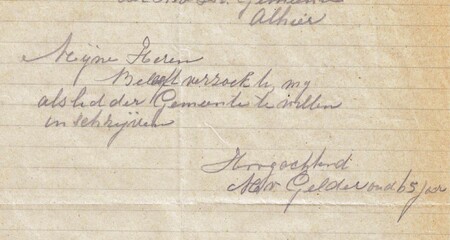 Gemeente
Alhier
Mijne Heren
Beleeft verzoek ik my
als lid der Gemeente te willen
inschrijven
Hoogachtend
v Gelder oud 65 jaar